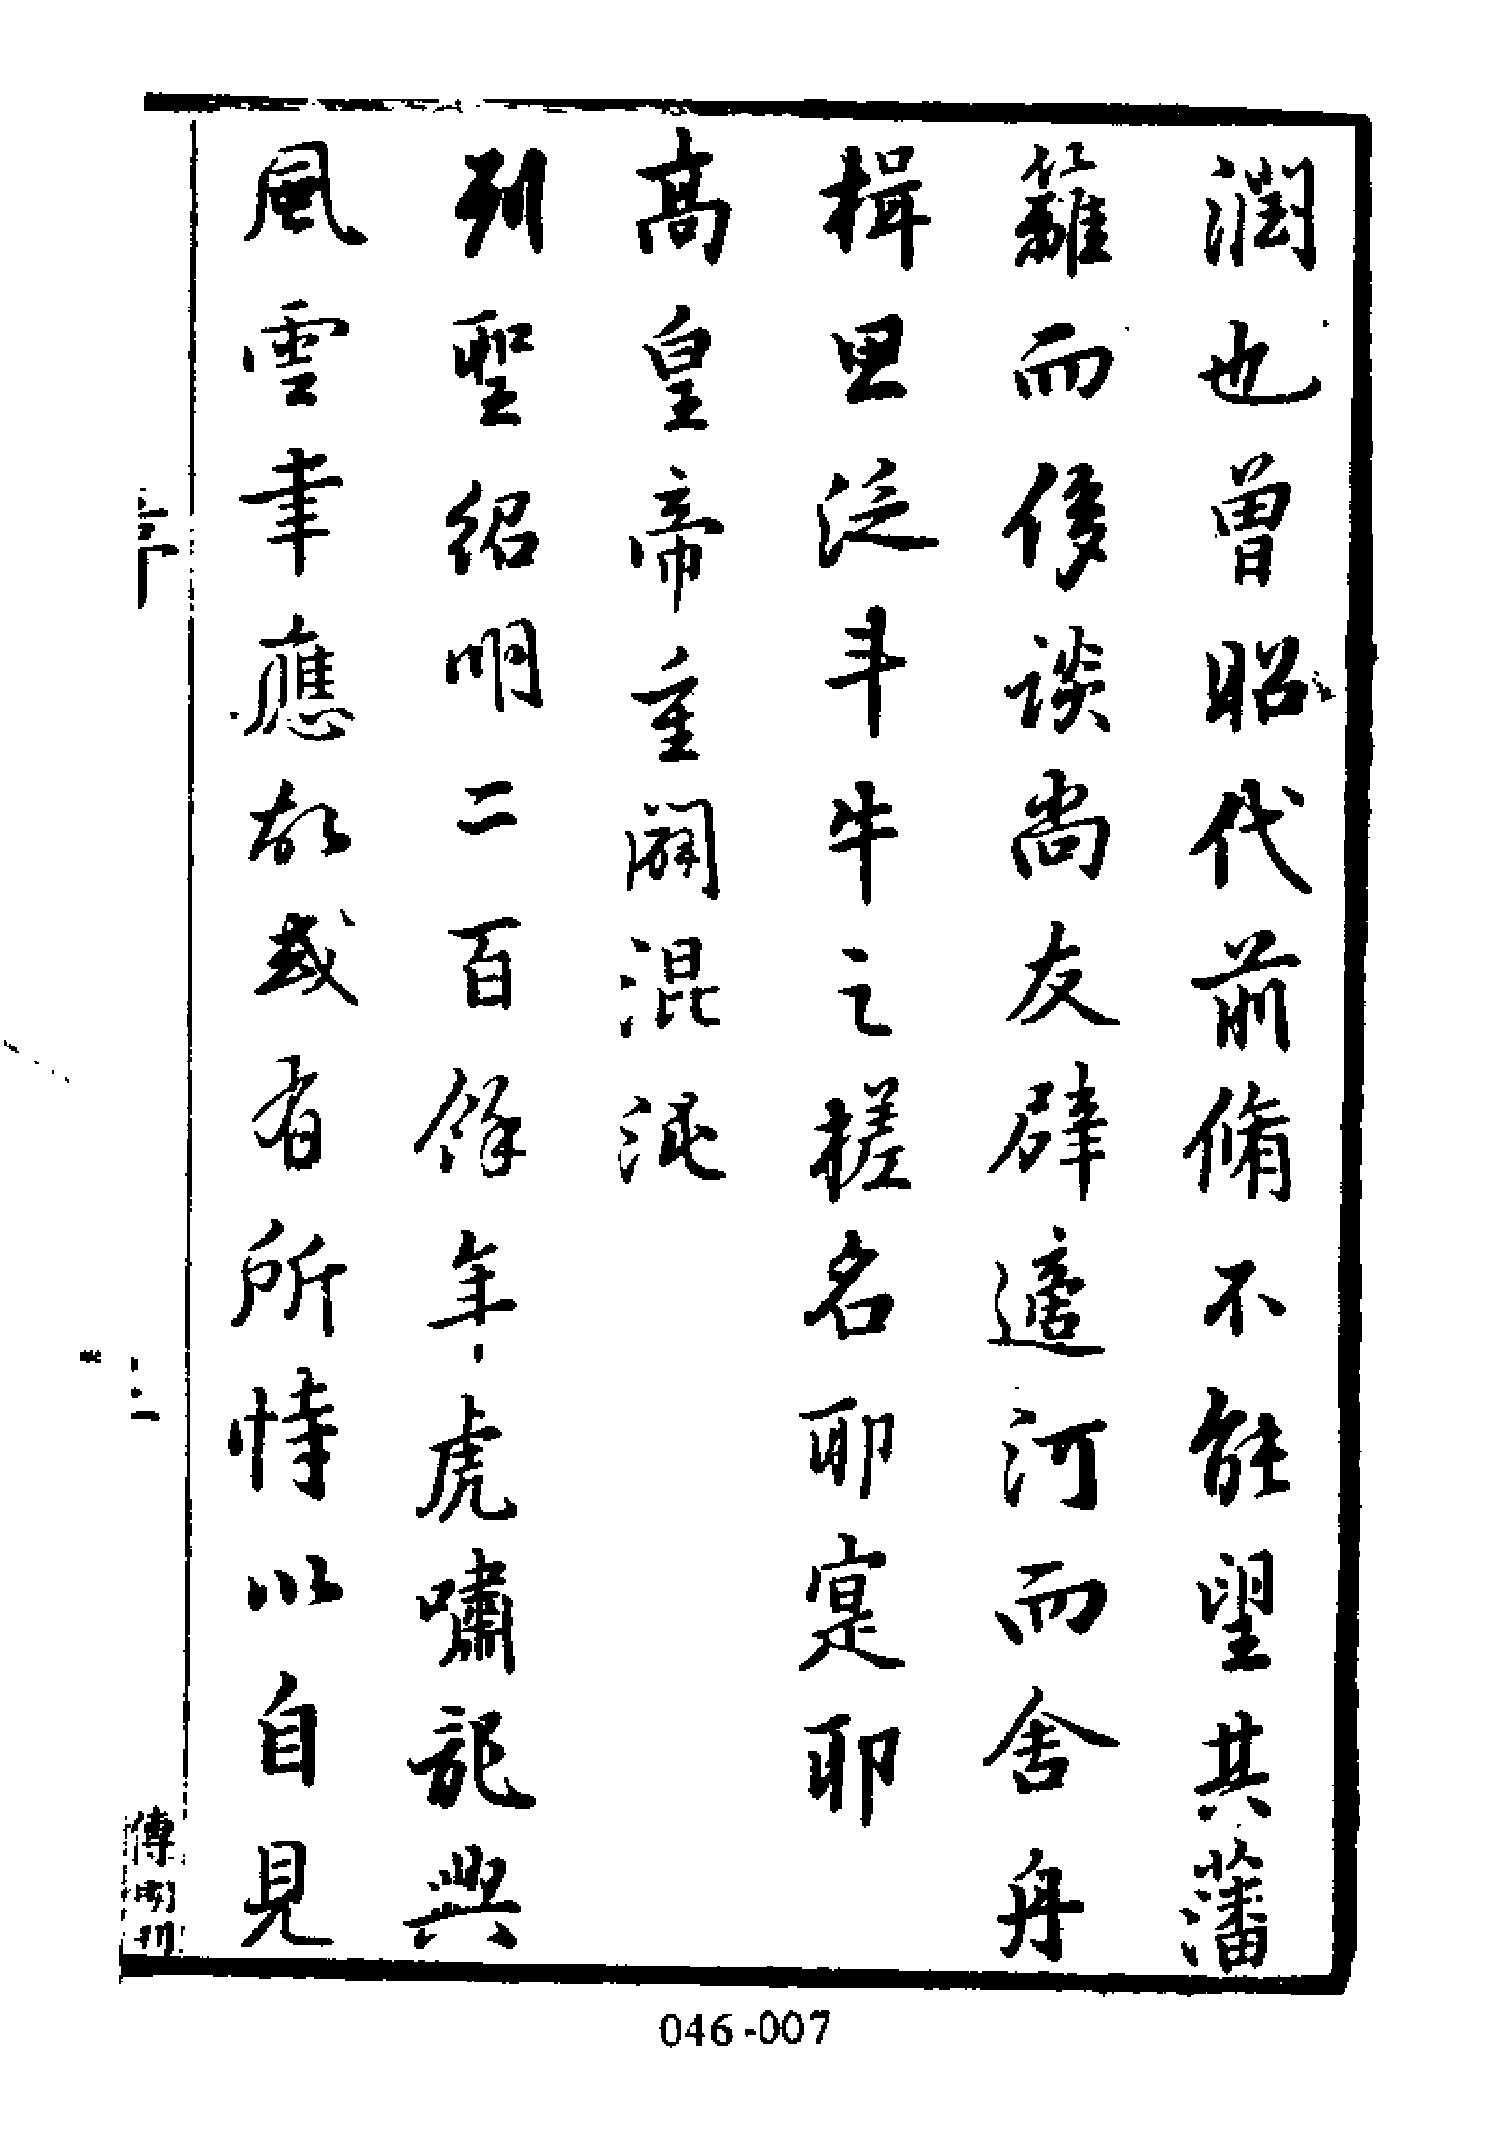 潤也曾昭代前脩不能望其藩
籬而侈談尚友辟適河而舍舟
楫思泛斗牛之槎名耶寔耶
高皇帝重闢混沌
列聖紹明二百餘年虎嘯龍興
風雲聿應故或有所恃以自見
序
二
傅汝光刊
046-007